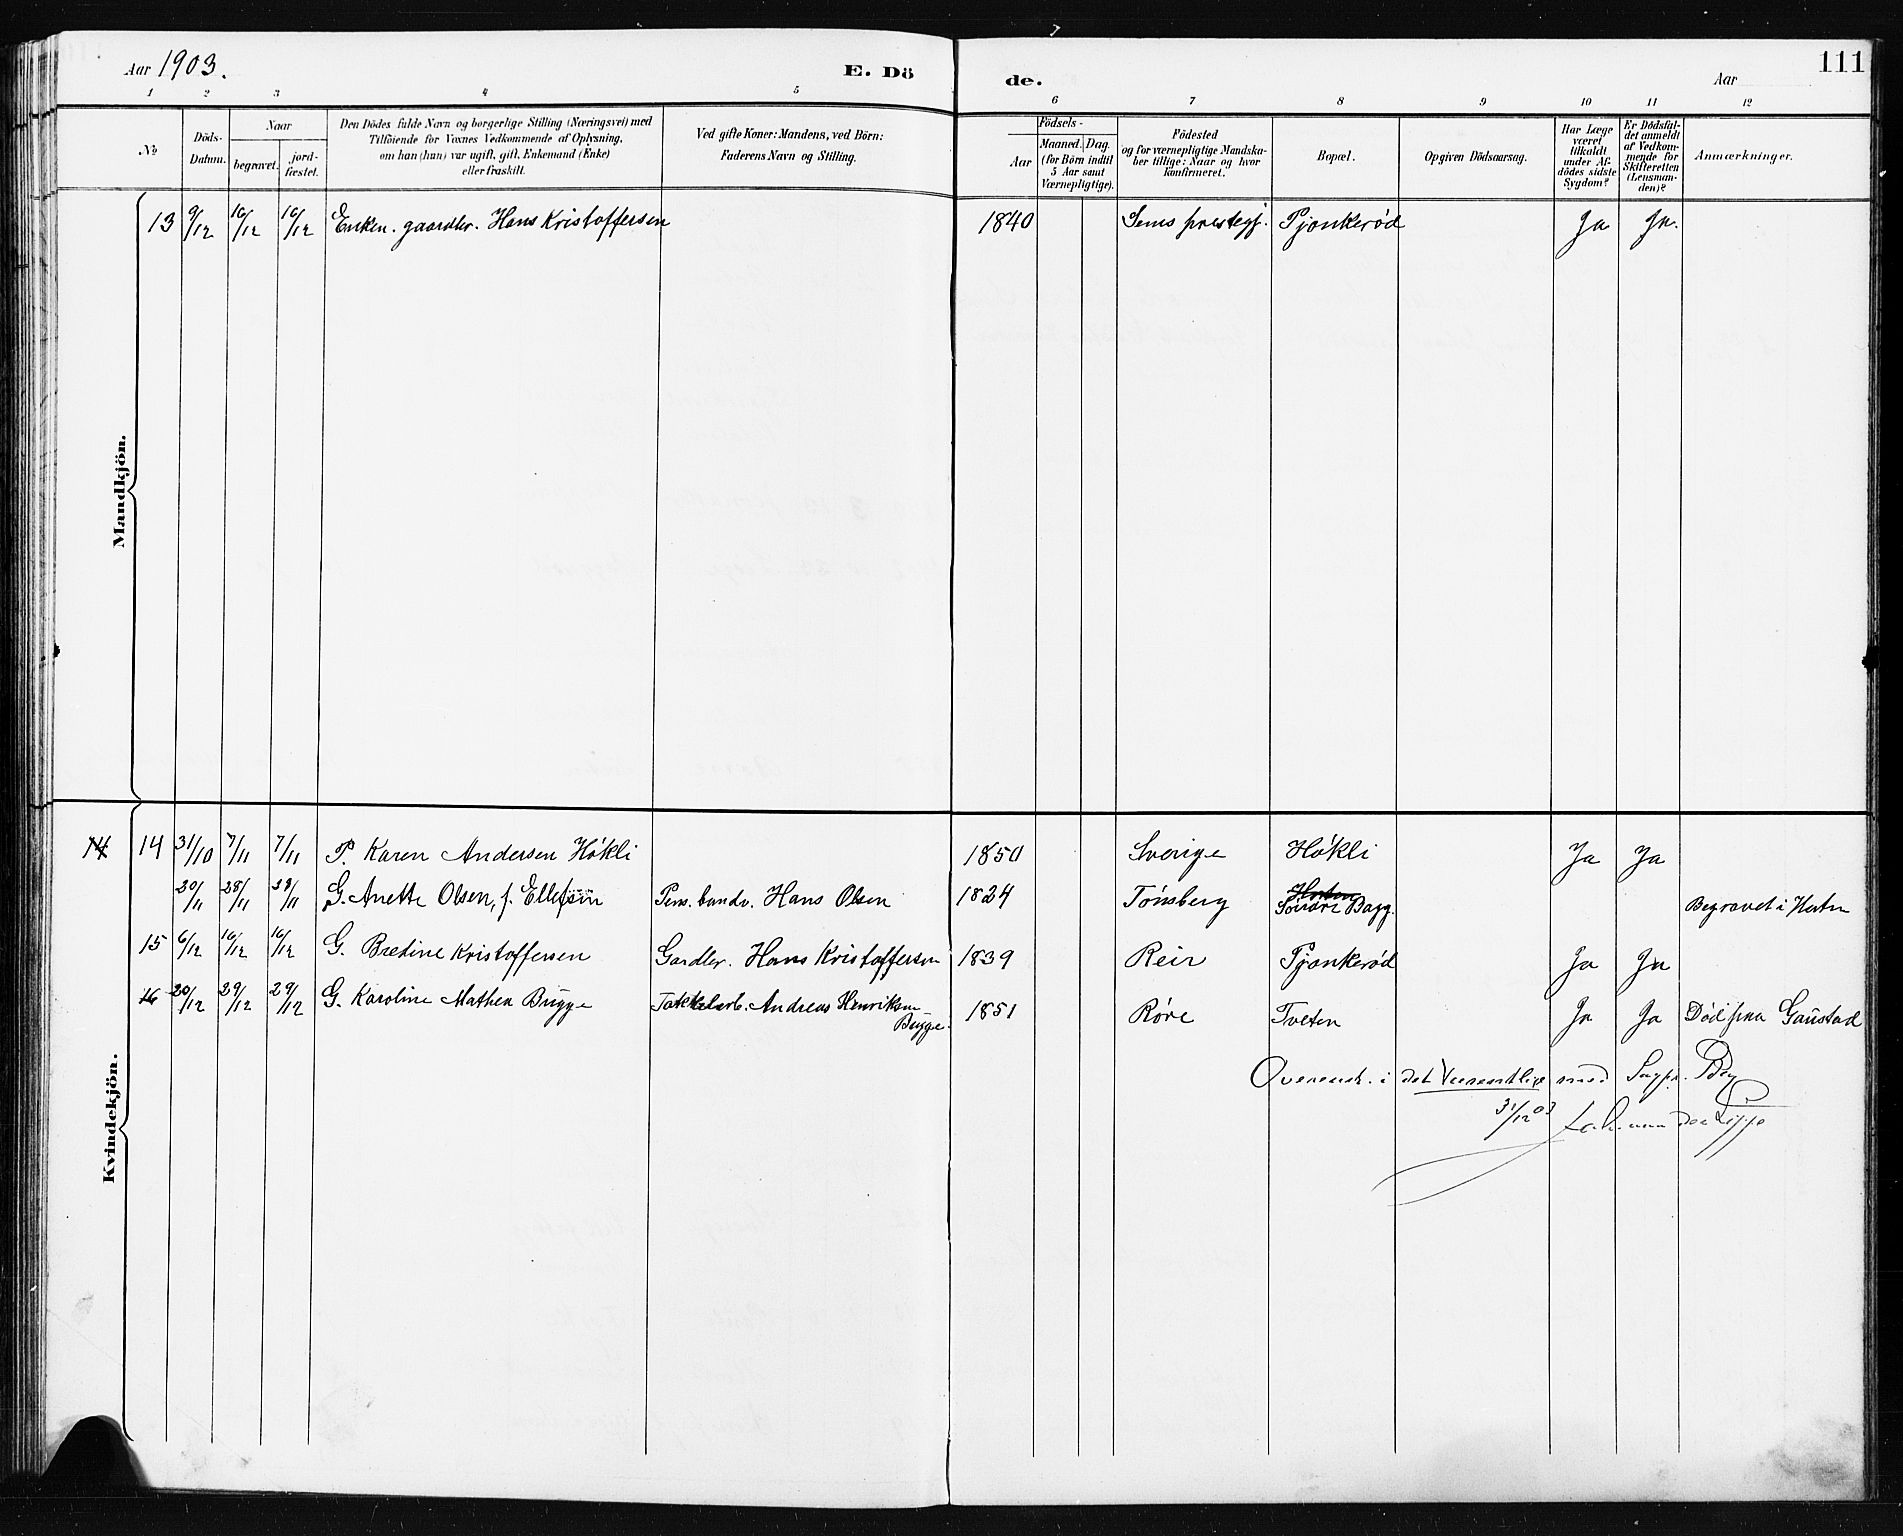 Aar 1903. E. Döde. Aar 111
1 2 3 4 5 6 7 8 9 10 11 12
№ Döds-Datum. Naar begravet. jordfæstet. Den Dödes fulde Navn og borgerlige Stilling (Næringsvei) med Tilföiende for Voxnes Vedkommende af Oplysning, om han (hun) var ugift, gift, Enkemand (Enke) eller fraskilt. Ved gifte Koner: Mandens, ved Börn: Faderens Navn og Stilling. Födsels- Aar Maaned. Dag. (for Börn indtil 5 Aar samt Værnepligtige). Födested og for værnepligtige Mandskaber tillige: Naar og hvor konfirmeret. Bopæl. Opgiven Dödsaarsag. Har Læge været tilkaldt under Afdödes sidste Sygdom? Er Dödsfaldet anmeldt af Vedkommende for Skifteretten (Lensmanden)? Anmærkninger.
Mandkjön.
13 9/12 16/12 16/12 Enkem. gaardbr. Hans Kristoffersen 1840 Sems prestegj. Pjonkerød Ja Ja.
Kvindekjön.
14 14 31/10 7/11 7/11 P. Karen Andersen Høkli 1850 Sverige Høkli Ja Ja
20/11 28/11 28/11 G. Anette Olsen, f. Ellefsen Pens. tømdv. Hans Olsen 1824 Tønsberg Horten Søndre Bagg. Begravet i Horten
15 6/12 16/12 16/12 G. Bredine Kristoffersen Gardbr. Hans Kristoffersen 1839 Reir Pjonkerød Ja Ja
16 20/12 29/12 29/12 G. Karoline Mathea Bugge Takkelarb. Andreas Henriksen Bugge. 1851 Røre Tveten Ja Ja Død paa Gaustad
Overenst. i det Væsentlige med Sogpr. Bog
31/12 03 Joh. van der Lippe